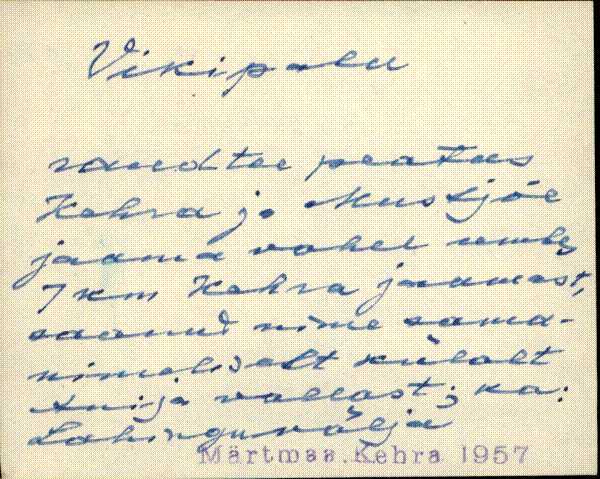 Vikipalu
raudtee peatus
Kehra ja Mustjõe
jaama vahel umbes
7 km Kehra jaamast,
saanud nime sama-
nimeliselt külalt
Anija vallast; ka:
Lahinguvälja
Märtmaa. Kehra 1957